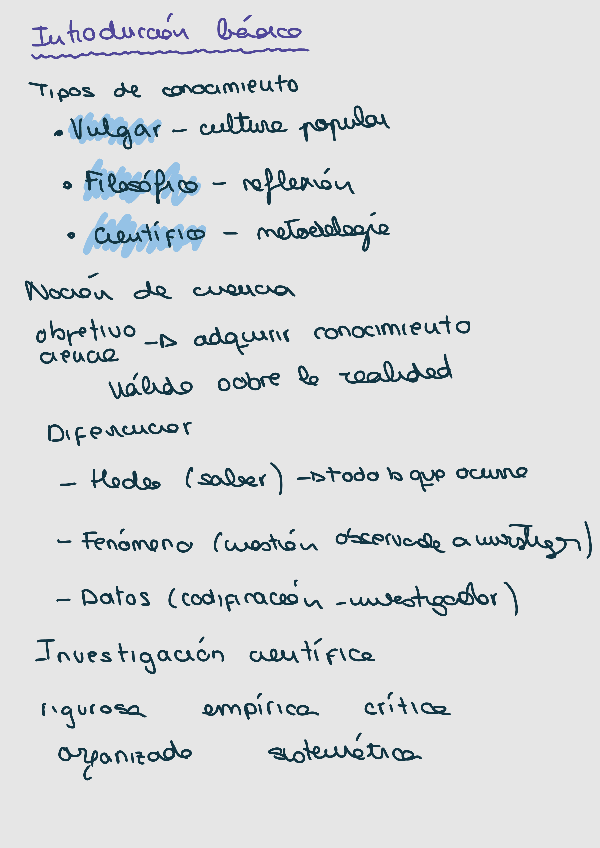 Introducción básica
Tipos de conocimiento
• Vulgar – cultura popular
• Filosófico – reflexión
• Científico – metodología
Noción de ciencia
objetivo
ciencia → adquirir conocimiento
válido sobre la realidad
Diferenciar
– Hechos (saber) → todo lo que ocurre
– Fenómeno (cuestión observada a investigar)
– Datos (codificación – investigador)
Investigación científica
rigurosa empírica crítica
organizada sistemática